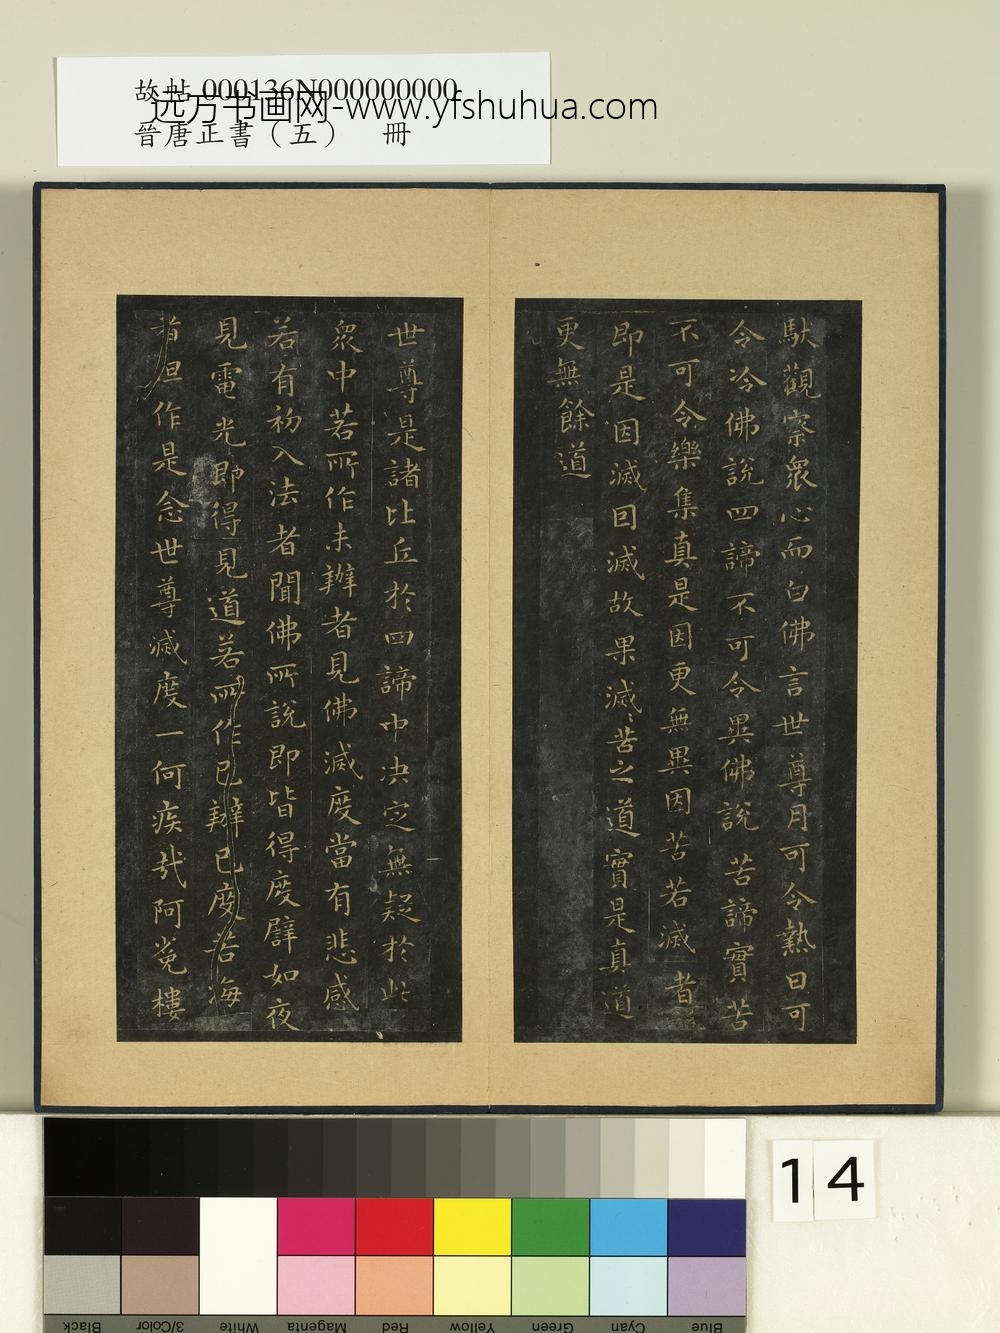 故帖 000136N000000000
远方书画网-www.yfshuhua.com
晉唐正書（五） 冊
馱觀察眾心而白佛言世尊月可令熱日可
令冷佛說四諦不可令異佛說苦諦實苦
不可令樂集真是因更無異因苦若滅者
即是因滅因滅故果滅滅苦之道實是真道
更無餘道
世尊是諸比丘於四諦中決定無疑於此
眾中若所作未辦者見佛滅度當有悲感
若有初入法者聞佛所說即皆得度譬如夜
見電光即得見道若所作已辦已度苦海
者但作是念世尊滅度一何疾哉阿㝹樓
14
Black
3/Color
White
Magenta
Red
Yellow
Green
Cyan
Blue